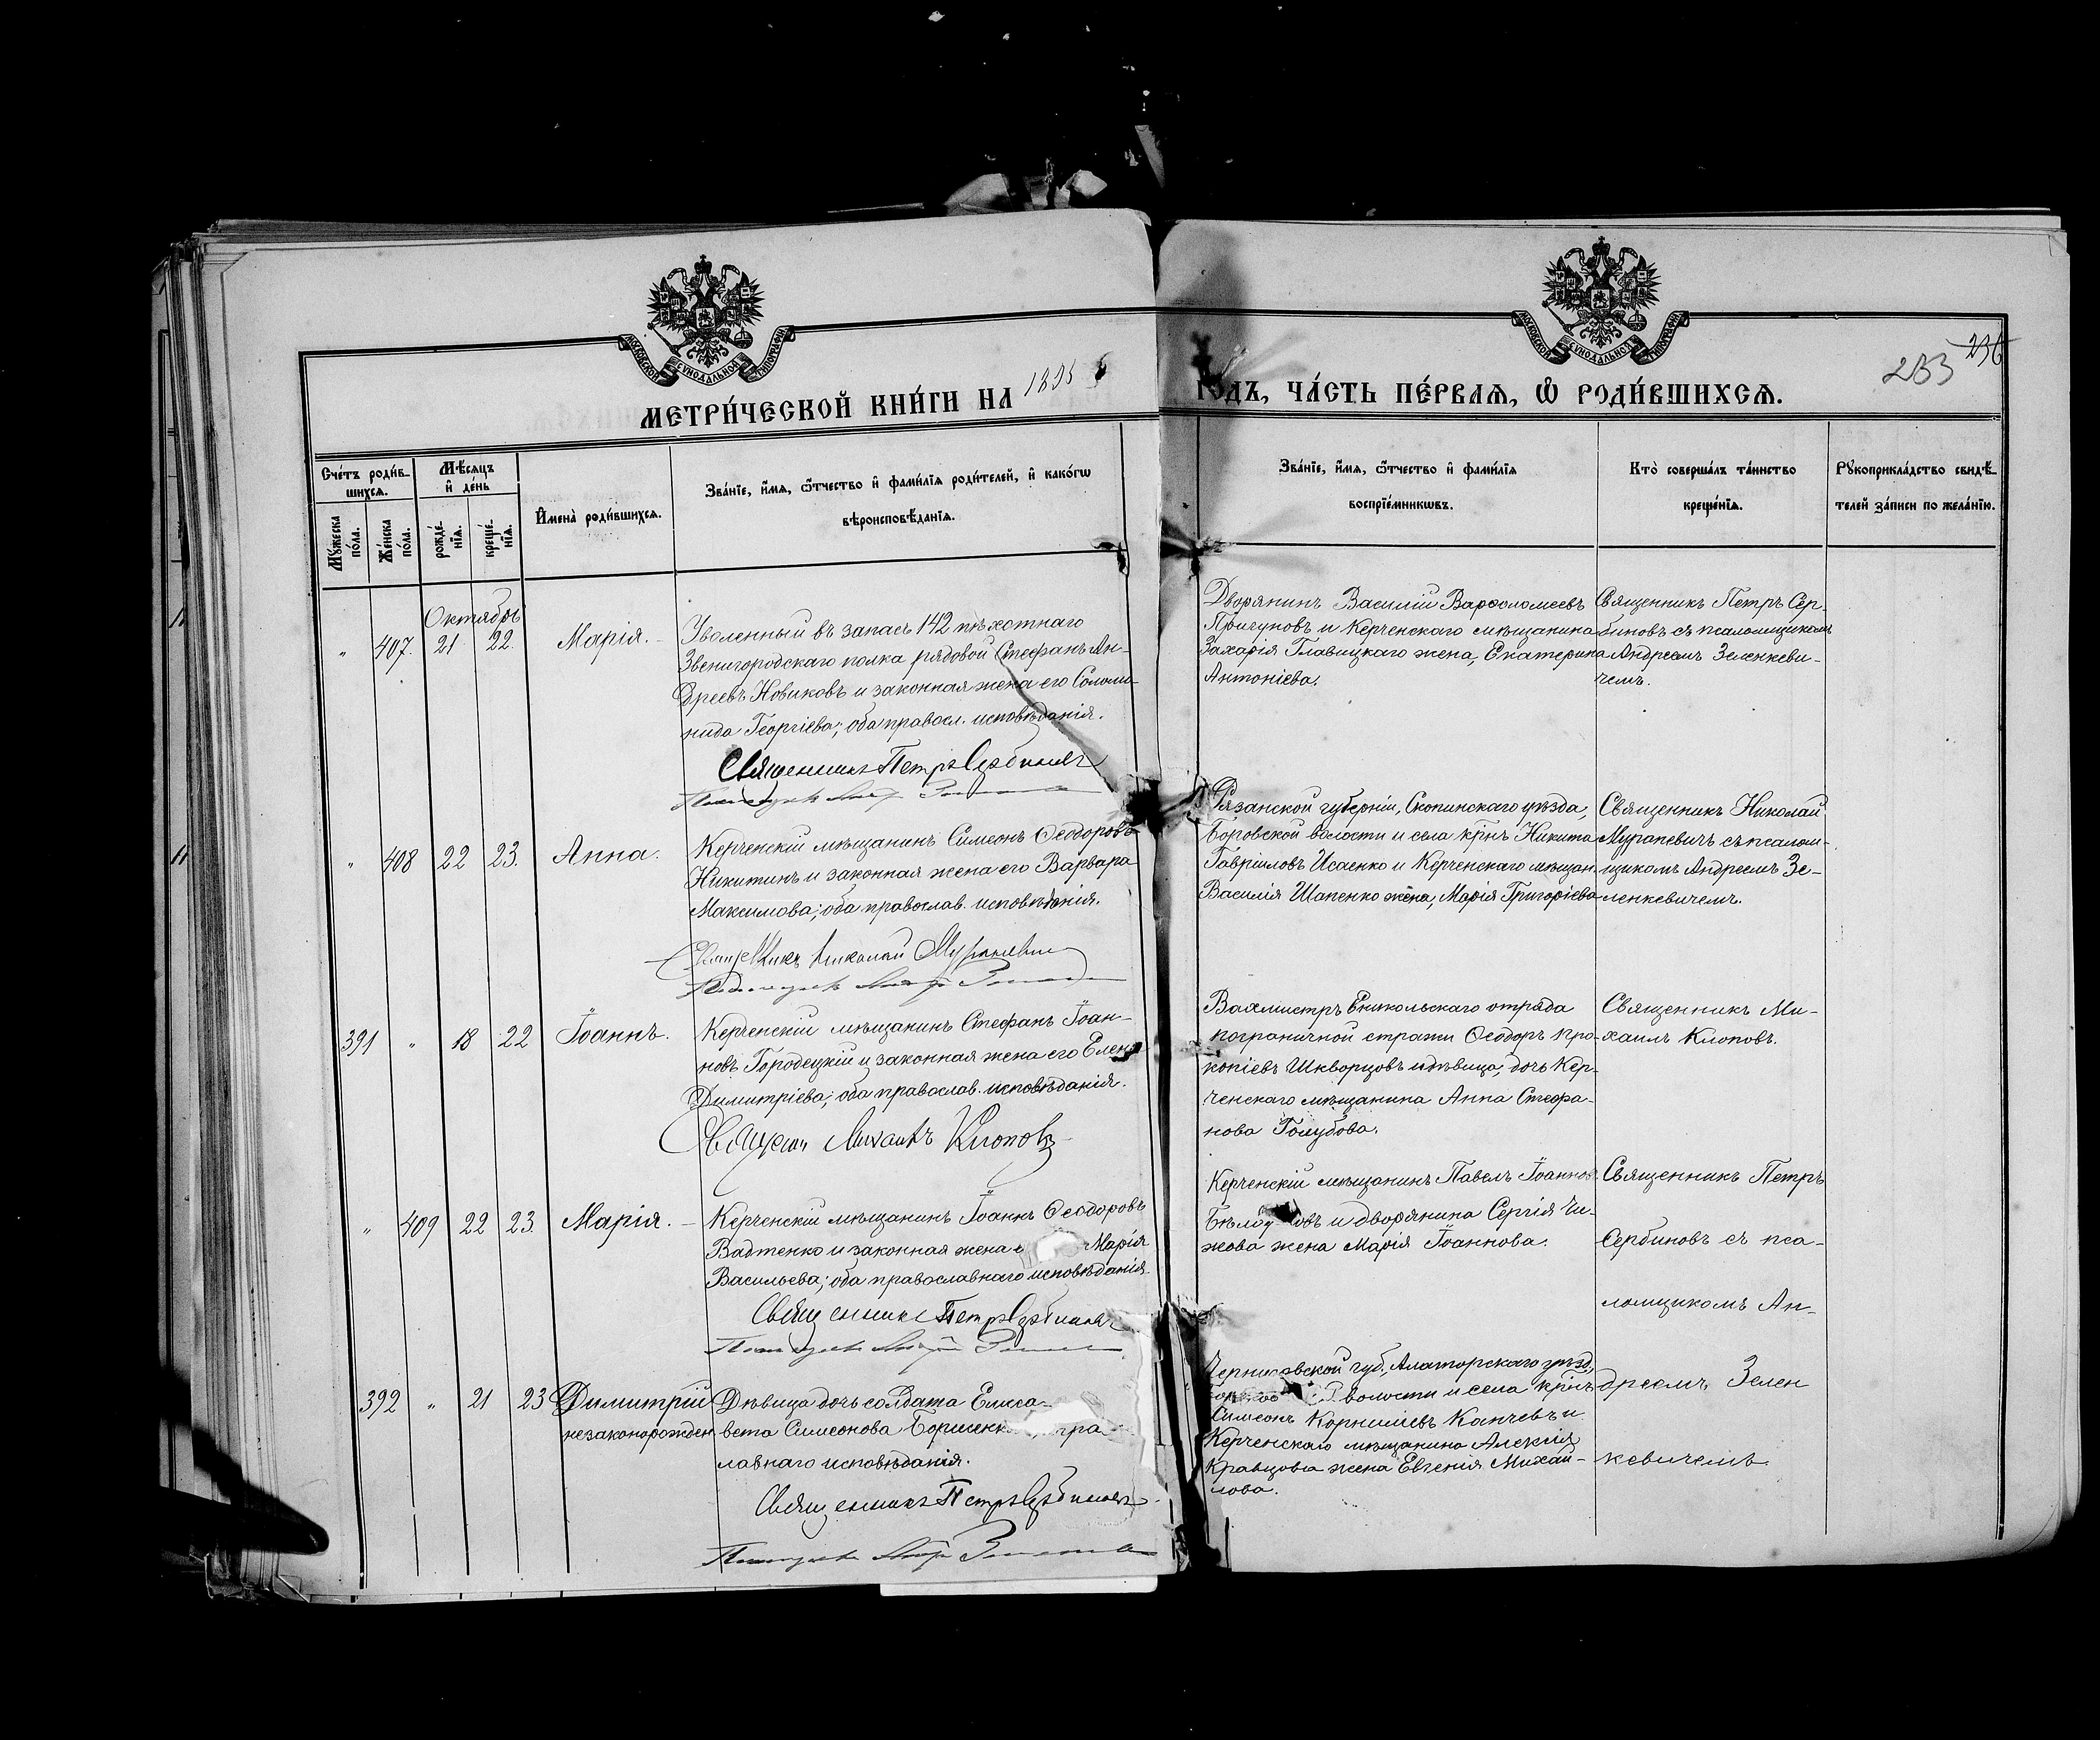 МОСКОВСКОЙ СѴНОДАЛЬНОЙ ТИПОГРАФІИ
МОСКОВСКОЙ СѴНОДАЛЬНОЙ ТИПОГРАФІИ
233 236
МЕТРИ́ЧЕСКОЙ КНИ́ГИ НА 1895 ГОДЪ, ЧА́СТЬ ПЕ́РВАѦ, Ѡ҆ РОДИ́ВШИХСѦ.
Сче́тъ роди́в-
шихсѧ.
Мꙋ́жеска по́ла.
Же́нска по́ла.
Мѣ́сѧцъ
и҆ де́нь
рожде́-нїѧ.
креще́-нїѧ.
И҆мена̀ роди́вшихсѧ.
Зва́нїе, и҆́мѧ, ѻ҆́тчество и҆ фами́лїѧ роди́телей, и҆ како́гѡ
вѣроисповѣ́данїѧ.
Зва́нїе, и҆́мѧ, ѻ҆́тчество и҆ фами́лїѧ
воспрїе́мникѡвъ.
Кто̀ соверша́лъ та́инство
креще́нїѧ.
Рꙋкоприкла́дство свидѣ́-
телей за́писи по жела́нїю.
Октябрь
„ 407. 21 22. Марія. –
Уволенный въ запасъ 142 пѣхотнаго
Звенигородскаго полка рядовой Стефанъ Ан-
дреевъ Новиковъ и законная жена его Соломо-
нида Георгіева; оба правосл. исповѣданія.
Священникъ Петръ Сербиновъ
Дворянинъ Василій Варѳоломеевъ
Пригуновъ и Керченскаго мѣщанина
Захарія Главицкаго жена, Екатерина
Антоніева.
Священникъ Петръ Сер-
биновъ съ псаломщикомъ
Андреемъ Зеленкеви-
чемъ.
„ 408 22 23. Анна.
Керченскій мѣщанинъ Симеонъ Ѳеодоровъ
Никитинъ и законная жена его Варвара
Максимова; оба православ. исповѣданія.
Священникъ Николай Мураневичъ
Рязанской губерніи, Скопинскаго уѣзда,
Боровской волости и села кр̃нъ Никита
Гавріиловъ Исаенко и Керченскаго мѣщан.
Василія Шапенко жена, Марія Григоріева
Священникъ Николай
Мураневичъ съ псалом-
щикомъ Андреемъ Зе-
ленкевичемъ.
391 „ 18 22 Іоаннъ.
Керченскій мѣщанинъ Стефанъ Іоан-
новъ Городецкій и законная жена его Елена
Димитріева; оба православ. исповѣданія.
Священ. Михаилъ Клоповъ
Вахмистръ Еникольскаго отряда
пограничной стражи Ѳеодоръ Про-
копіевъ Шкворцовъ и дѣвица, дочь Кер-
ченскаго мѣщанина Анна Стефа-
нова Голубова.
Священникъ Ми-
хаилъ Клоповъ.
„ 409 22 23 Марія. –
Керченскій мѣщанинъ Іоаннъ Ѳеодоровъ
Вадтенко и законная жена Марія
Васильева; оба православнаго исповѣданія.
Священникъ Петръ Сербиновъ
Керченскій мѣщанинъ Павелъ Іоаннов
и дворянина Сергія Чи-
жова жена Марія Іоаннова.
Священникъ Петръ
Сербиновъ съ пса-
ломщикомъ Ан-
392 „ 21 23 Димитрій
незаконорожден
Дѣвица дочь солдата Елиса-
вета Симеонова
лавнаго исповѣданія.
Священникъ Петръ Сербиновъ
губ., Алаторскаго уѣзд.,
волости и села кр̃нъ
Симеонъ Корниліевъ Капчевъ и
Керченскаго мѣщанина Алексія
Кравцова жена Евгенія Михай-
лова.
дреемъ Зелен
кевичемъ